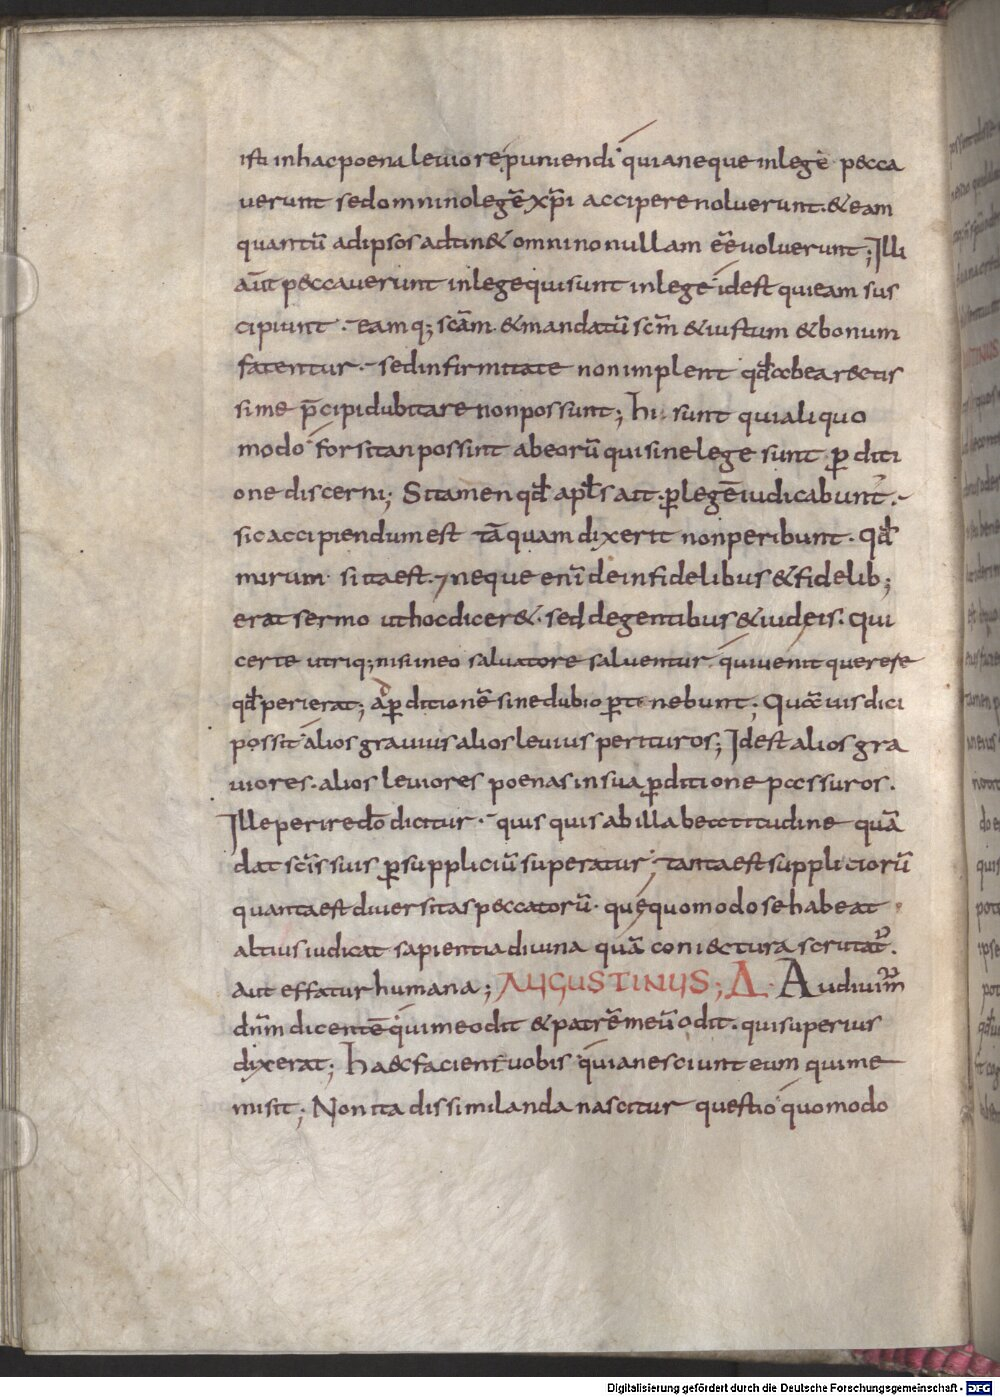 isti in hac poena leuiore puniendi quia neque in lege pecca
uerunt sed omnino legē xp̄i accipere noluerunt. & eam
quantū ad ipsos adtin& omnino nullam eē uoluerunt; Illi
aut̄ peccauerunt in lege qui sunt in lege id est qui eam sus
cipiunt. eamq; sc̄am & mandatū sc̄m & iustum & bonum
fatentur. sed infirmitate non implent qđ ab ea rectis
sime p̄cipi dubitare non possunt; hi sunt qui aliquo
modo forsitan possint ab eorū qui sine lege sunt ꝑditi
one discerni; Si tamen qđ apl̄s ait. ꝑ legē iudicabunt̄.
sic accipiendum est tāquam dixerit non peribunt. qđ
mirum si ita est. neque enī de infidelibus & fidelib;
erat sermo ut hoc dicer&. sed de gentibus & iudeis. qui
certe utriq; nisi in eo saluatore saluentur qui uenit querere
qđ perierat; ad ꝑditionē sine dubio ꝑtinebunt; Quāuis dici
possit alios grauius alios leuius perituros; Id est alios gra
uiores. alios leuiores poenas in sua ꝑditione passuros.
Ille perire dō dicitur. quisquis ab illa beatitudine quā
dat sc̄is suis ꝑ suppliciū superatur; tanta est suppliciorū
quanta est diuersitas peccatorū. que quomodo se habeat
altius iudicat sapientia diuina quā coniectura scrutat̄.
aut effatur humana; AUGUSTINUS; Δ Audiuim̄
dn̄m dicentē qui me odit & patrē meū odit. qui superius
dixerat; Haec facient uobis quia nesciunt eum qui me
misit; Non ita dissimilanda nascitur questio quomodo
Digitalisierung gefördert durch die Deutsche Forschungsgemeinschaft - DFG